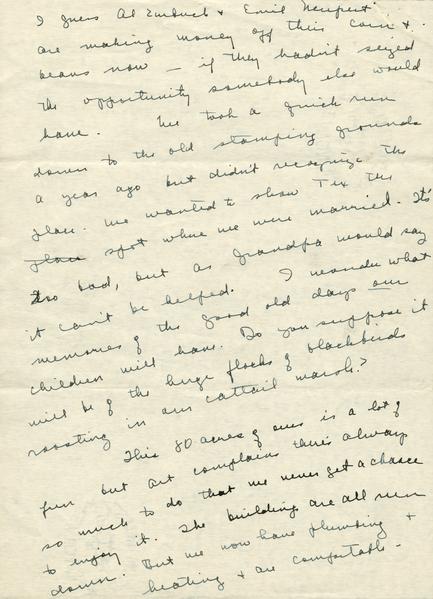 I guess Al & Emil
are making money off their corn &
beans now — if they hadn't seized
the opportunity somebody else would
have. We took a quick run
down to the old stamping grounds
a year ago but didn't recognize the
place. We wanted to show Tex the
spot where we were married. It's
too bad, but as Grandpa would say
it can't be helped. I wonder what
memories of the good old days our
children will have. Do you suppose it
will be of the huge flocks of blackbirds
roosting in our cattail marsh?
This 80 acres of ours is a lot of
fun but Art complains there's always
so much to do that we never get a chance
to enjoy it. The buildings are all run
down. But we now have plumbing &
heating & are comfortable -